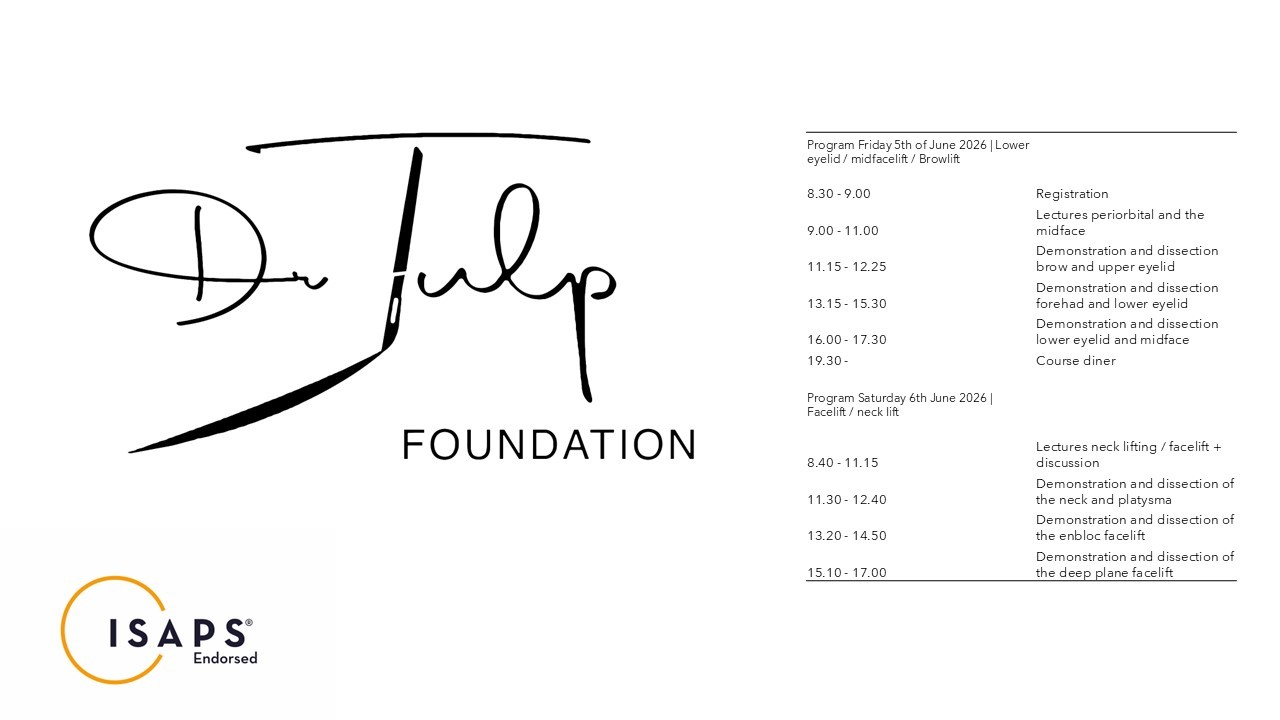 Dr Tulp
FOUNDATION
ISAPS®
Endorsed
Program Friday 5th of June 2026 | Lower
eyelid / midfacelift / Browlift
8.30 - 9.00 Registration
Lectures periorbital and the
9.00 - 11.00 midface
Demonstration and dissection
11.15 - 12.25 brow and upper eyelid
Demonstration and dissection
13.15 - 15.30 forehad and lower eyelid
Demonstration and dissection
16.00 - 17.30 lower eyelid and midface
19.30 - Course diner
Program Saturday 6th June 2026 |
Facelift / neck lift
Lectures neck lifting / facelift +
8.40 - 11.15 discussion
Demonstration and dissection of
11.30 - 12.40 the neck and platysma
Demonstration and dissection of
13.20 - 14.50 the enbloc facelift
Demonstration and dissection of
15.10 - 17.00 the deep plane facelift